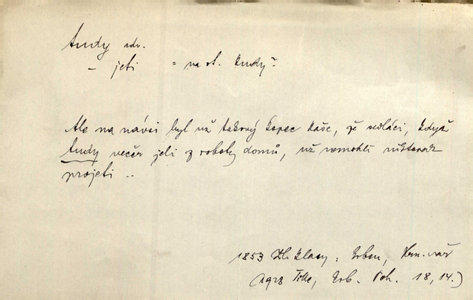 tudy adv.
— jeti = na ot. kudy?
Ale na návsi byl už takový kopec kaše, že sedláci, když
tudy večer jeli z roboty domů, už nemohli
projeti ..
1853 Klasy, Erben,
Erb. Poh. 18, 14.)